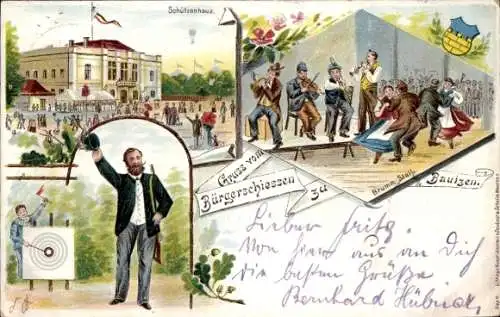 Schützenhaus.
Gruss vom
Bürgerschiessen
zu
Brumm-Stall.
Bautzen.
Lieber Fritz.
Von hier aus an Dich
die besten Grüße
Bernhard Hübner.